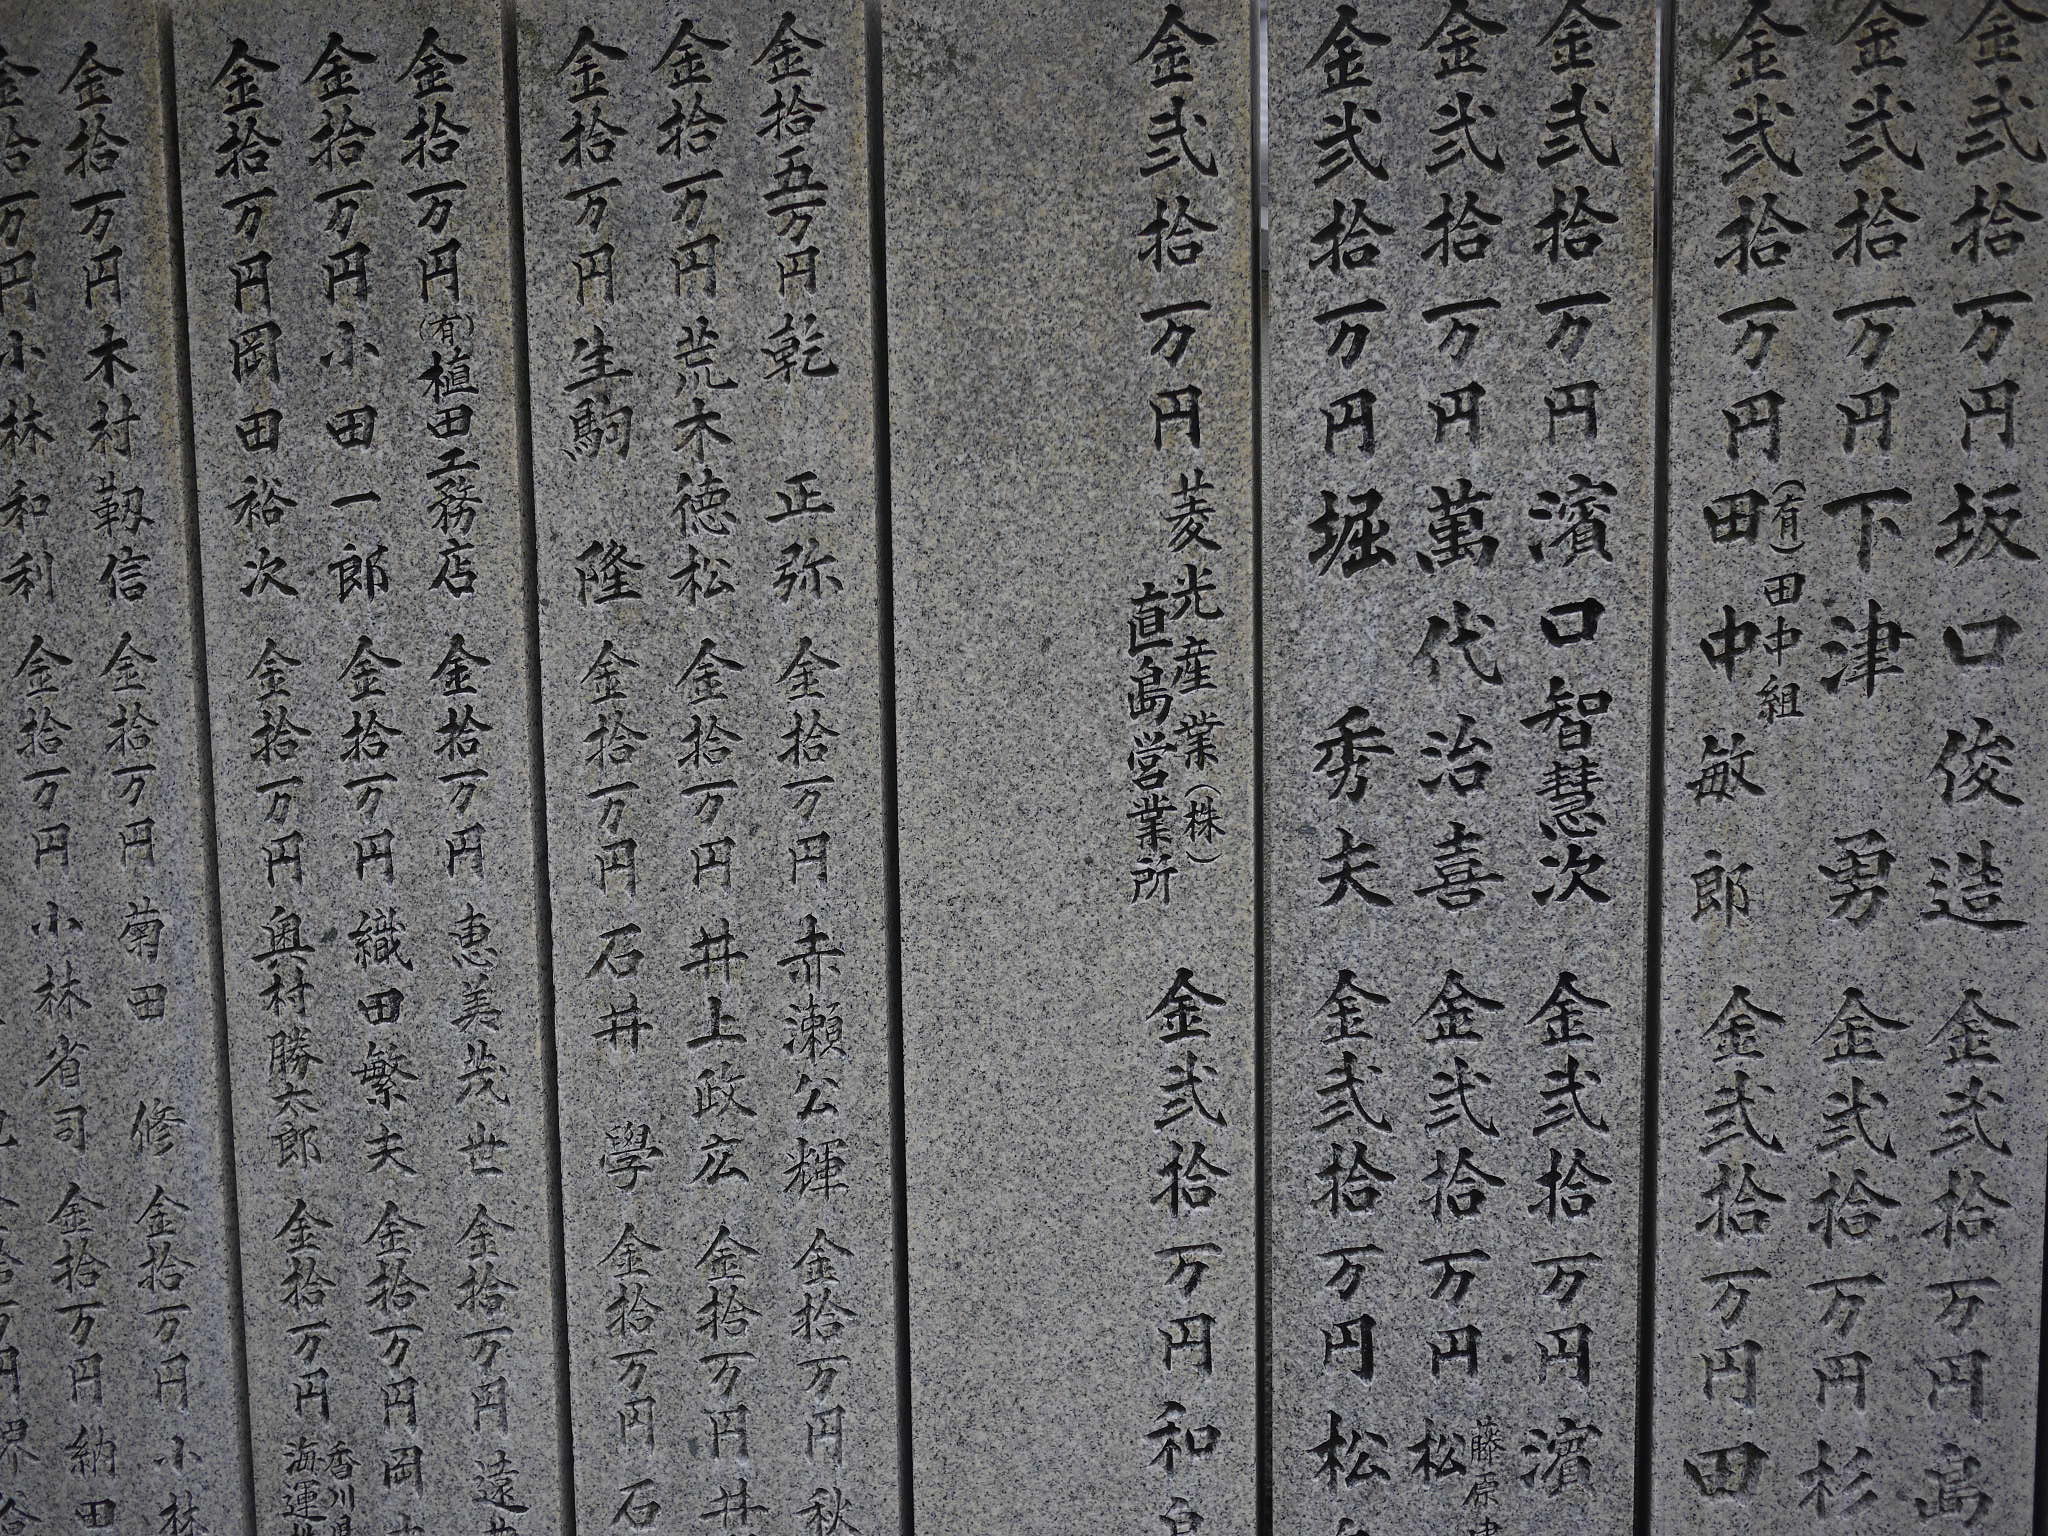 金弐拾万円 坂口俊造 金弐拾万円 島
金弐拾万円 下津 勇 金弐拾万円 杉
金弐拾万円 (有)田中組 田中敏郎 金弐拾万円 田
金弐拾万円 濱口智慧次 金弐拾万円 濱
金弐拾万円 萬代治喜 金弐拾万円 藤原 松
金弐拾万円 堀 秀夫 金弐拾万円 松
金弐拾万円 菱光産業(株) 直島営業所 金弐拾万円 和
金拾五万円 乾 正弥 金拾万円 赤瀬公輝 金拾万円 秋
金拾万円 荒木徳松 金拾万円 井上政広 金拾万円 井
金拾万円 生駒 隆 金拾万円 石井 學 金拾万円 石
金拾万円 (有)植田工務店 金拾万円 恵美茂世 金拾万円 遠
金拾万円 小田一郎 金拾万円 織田繁夫 金拾万円 岡
金拾万円 岡田裕次 金拾万円 奥村勝太郎 金拾万円 香川 海運
金拾万円 木村靱信 金拾万円 菊田 修 金拾万円 小林
金拾万円 小林和利 金拾万円 小林省司 金拾万円 納田